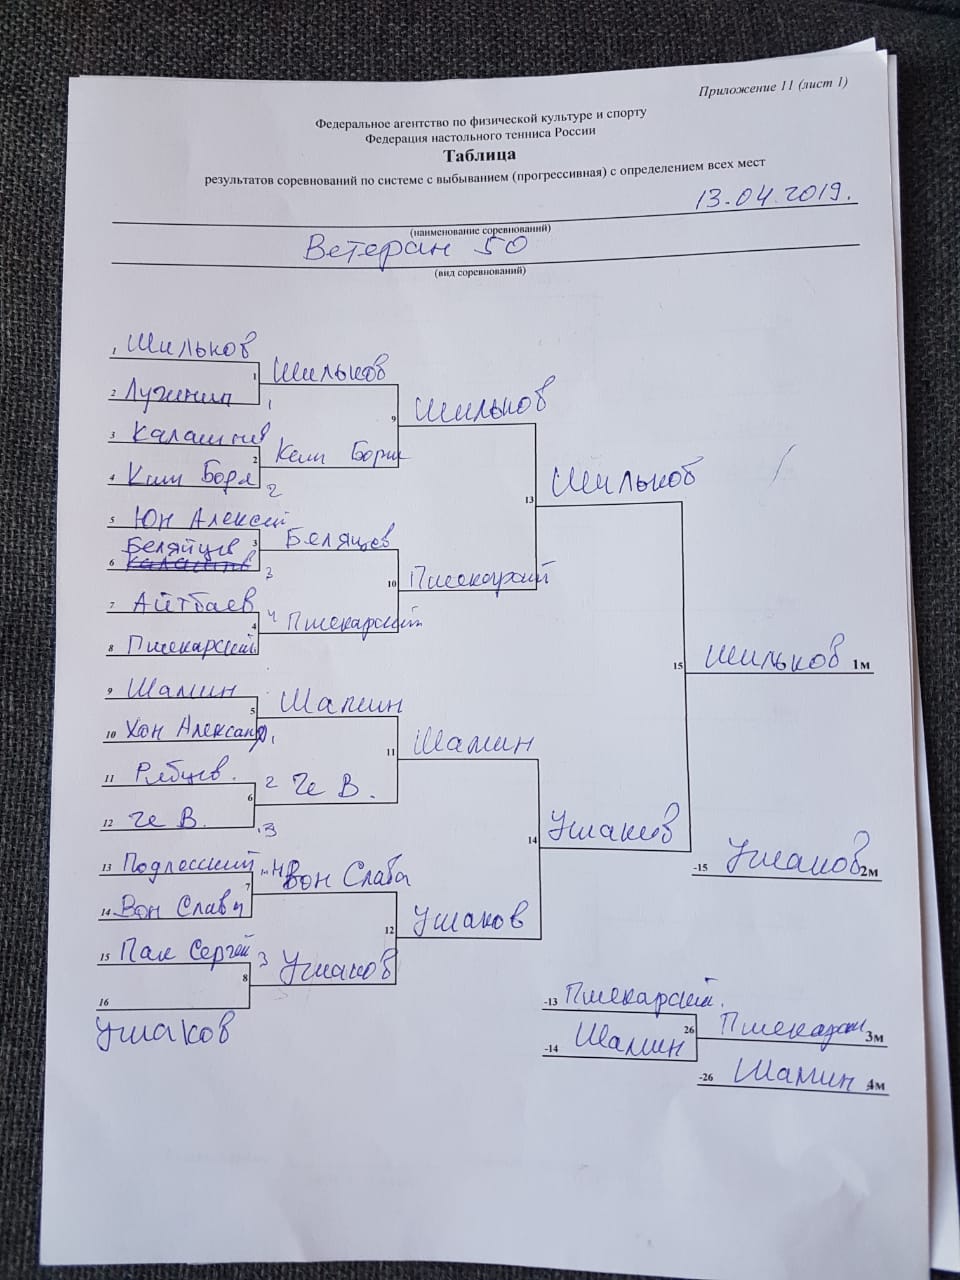 Приложение 11 (лист 1)
Федеральное агентство по физической культуре и спорту
Федерация настольного тенниса России
Таблица
результатов соревнований по системе с выбыванием (прогрессивная) с определением всех мест
13.04.2019.
(наименование соревнований)
Ветеран 50
(вид соревнований)
1 Шильков
1 Шильков
2 Лузинин
1
9 Шильков
3 Калашнев
2 Ким Борис
4 Ким Боря
2
13 Шильков
5 Юн Алексей
3 Беляцев
Беляйцев
6
3
10 Пшекарский
7 Айтбаев
4 ч Пшекарский
8 Пшекарский
15 Шильков 1м
9 Шамин
5 Шамин
10 Хон Александр
1
11 Шамин
11 Рябцев.
6 2 Че В.
12 Че В.
.3
14 Ушаков
-15 Ушаков 2м
13 Подлесский
7 Вон Слава
14 Вон Слава
12 Ушаков
15 Пак Сергей
8 3 Ушаков
16
Ушаков
-13 Пшекарский.
26 Пшекарский 3м
-14 Шамин
-26 Шамин 4м